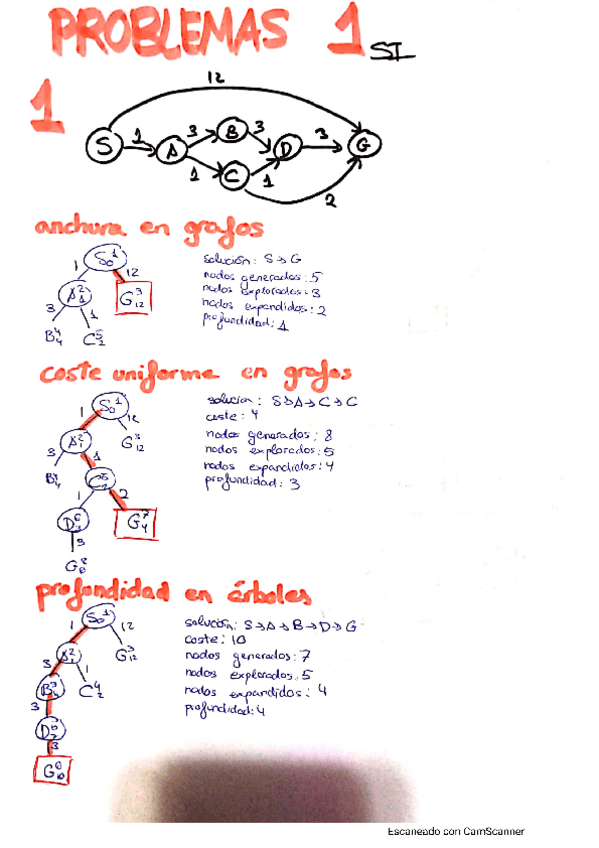 PROBLEMAS 1 SI
1
12
S 1 A 3 B 3 D 3 G
1 C 1
2
anchura en grafos
S 1 0
solución: S→G
1 12
nodos generados: 5
A 2 1 G 3 12
nodos explorados: 3
3 1
nodos expandidos: 2
B 4 4 C 5 2
profundidad: 1
coste uniforme en grafos
S 1 0
solucion: S→A→C→C
1 12
coste: 4
A 2 1 G 3 12
nodos generados: 8
3 1
nodos explorados: 5
B 4 4 C 5 2
nodos expandidos: 4
1 2
profundidad: 3
D 6 3 G 7 4
3
G 8 6
profundidad en árboles
S 1 0
solución: S→A→B→D→G
1 12
coste: 10
A 2 1 G 3 12
nodos generados: 7
3 1
nodos explorados: 5
B C 4 2
nodos expandidos: 4
3
profundidad: 4
D 7
3
G 10
Escaneado con CamScanner